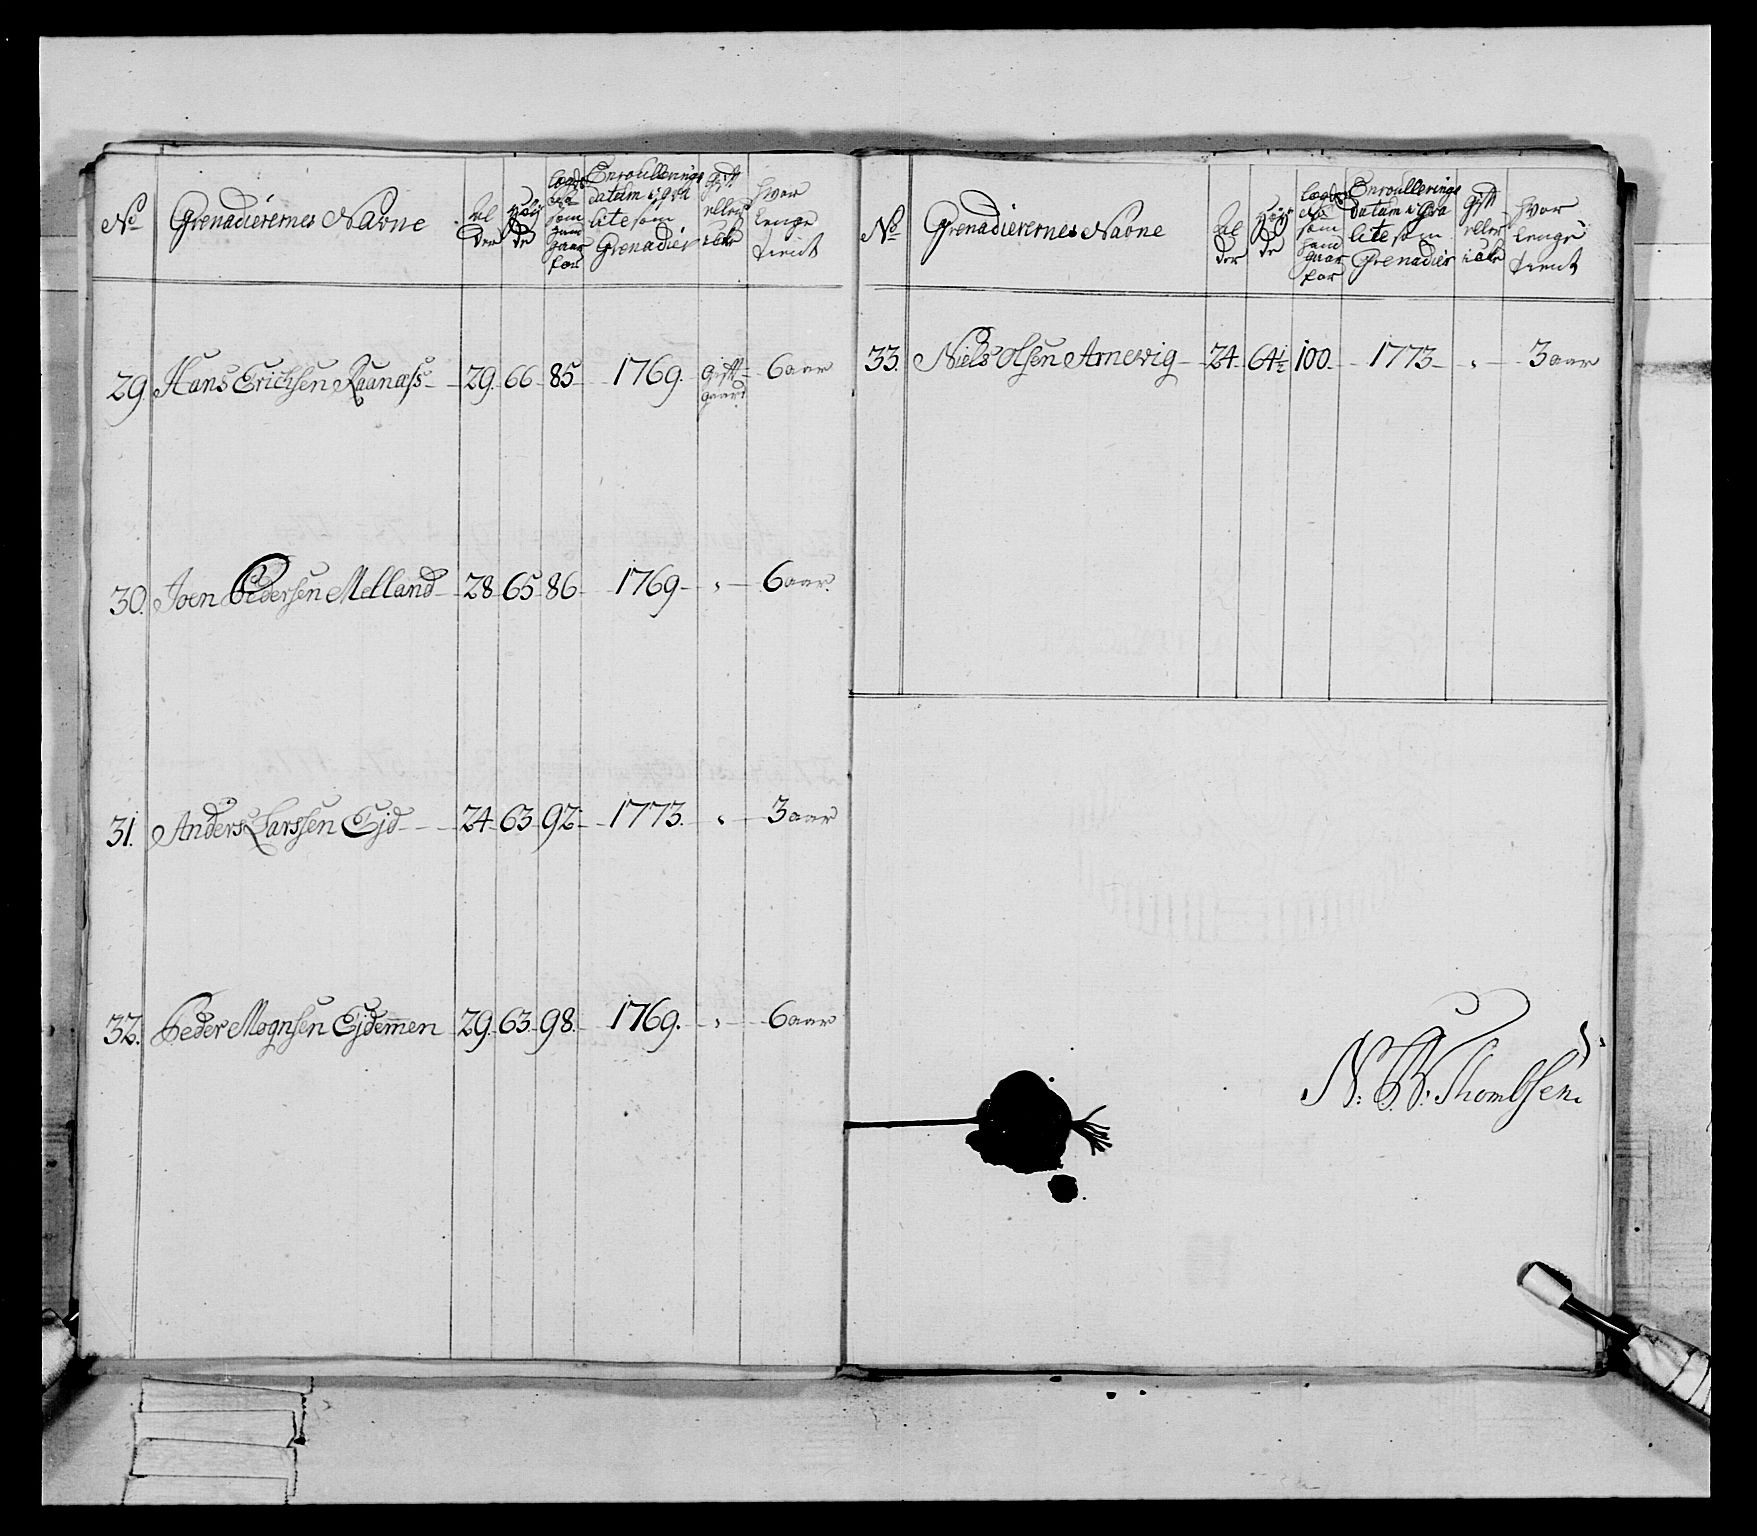 No Grenadierernes Navne Al der Høy de Lægds No som ham gaar for Enroullerings datum i qva lite som Grenadier Gift eller icke Hvor lenge tient
29. Hans Erichsen Raanæss 29. 66 85 1769. Gift gaard 6 aar
30. Joen Pedersen Melland 28 65 86 1769 " 6 aar.
31. Anders Larssen Ejd 24 63 92 1773. " 3 aar
32. Peder Mognsen Ejdemen 29. 63 98. 1769. " 6 aar
No Grenadierernes Navne Al der Høy de Lægds No som ham gaar for Enroullerings datum i qva lite som Grenadier Gift eller icke Hvor lenge tient
33. Niels Olsen Arnevig 24. 64½ 100. 1773 " 3 aar
N: W: Thombsen.